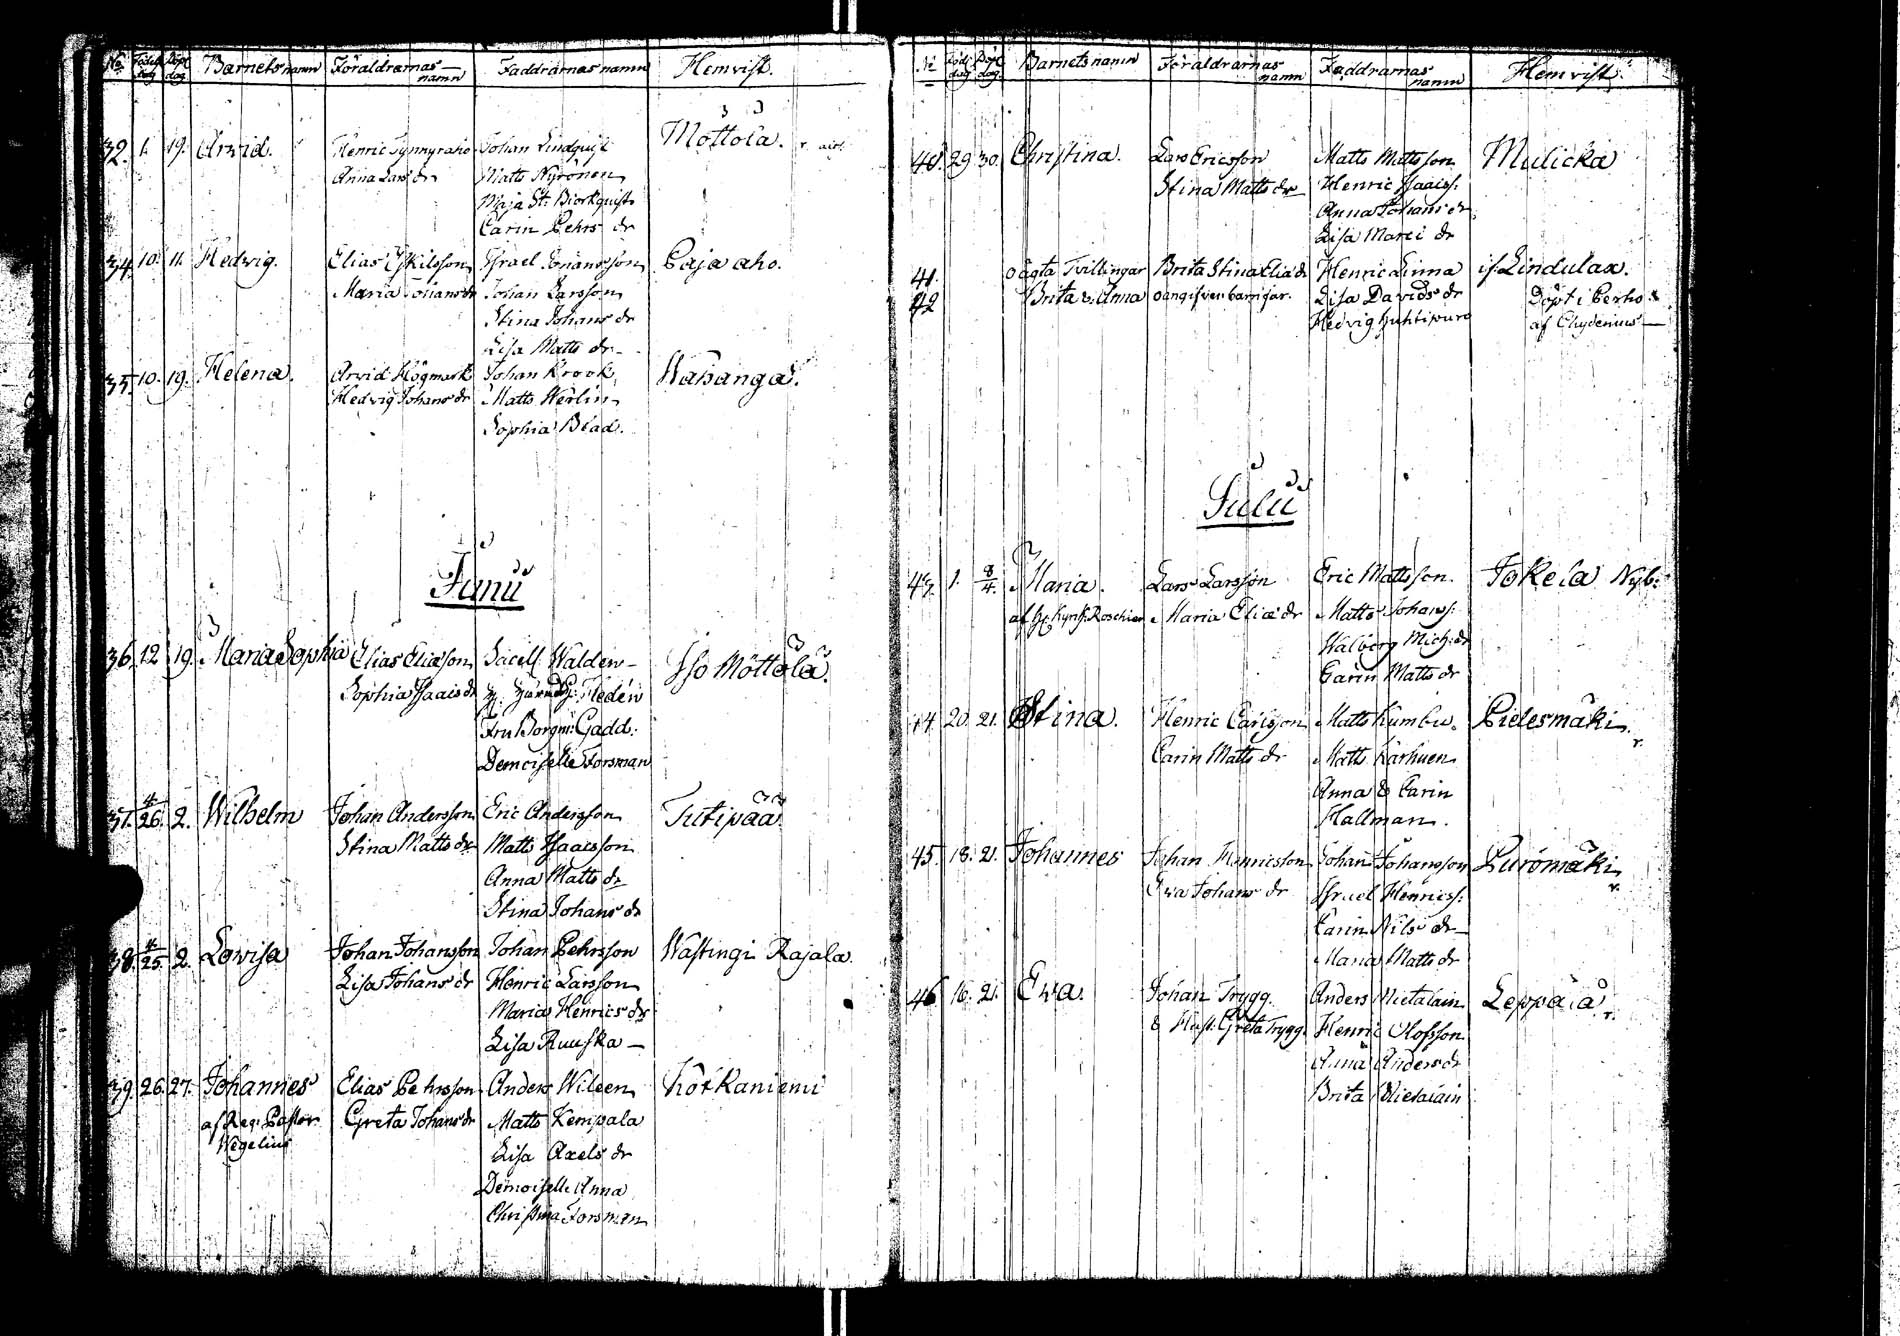 No Födelse dag Döpl dag Barnets namn Föräldrarnas namn Faddrarnas namn Hemvist.
32. 1. 19. Arvid. Henric Tynnyraho Johan Lindquist Möttölä.
Anna Lars dr Matts Nyrönen
Maja St: Biorkquist
Carin Pehrs dr
34. 10. 11. Hedvig. Elias Eskilsson Israel Jonansson Pajaaho.
Maria Johans dr Johan Larsson
Stina Johans dr
Lisa Matts dr
35. 10. 19. Helena. Arvid Högmark Johan Krook Wahanga.
Hedvig Johans dr Matts Werlin
Sophia Blad.
Junii
36. 12 19. Maria Sophia Elias Eliæson Sacell Walden Iso Möttölä.
Sophia Isaacs dr Hedén
Fru Borgm: Gadd.
Demoiselle Forsman
37. 4/26. 2. Wilhelm Johan Andersson Eric Andersson Tutipää.
Stina Matts dr Matts Isaacsson
Anna Matts dr
Stina Johans dr
38. 4/25. 2. Lovisa Johan Johansson Johan Pehrsson Wastingi Rajala.
Lisa Johans dr Henric Larsson
Maria Henrics dr
Lisa Ruuska
39. 26. 27. Johannes Elias Pehrsson Anders Wileen Kötkaniemi
af Reg: Pastor Greta Johans dr Matts Kempala
Wegelius Lisa Axels dr
Demoiselle Anna
Christina Forsman
N Föd: dag Döpt dag Barnets namn Föräldrarnas namn Faddrarnas namn Hemvist.
40. 29 30. Christina. Lars Ericsson Matts Mattsson Mulicka
Stina Matts dr Henric Isaacss:
Anna Johans dr
Lisa Marci dr
41. oägta Tvillingar Brita Stina Eliæ dr Henric Linna if. Lindulax.
42 Brita & Anna oangifven barnfar. Lisa Davids dr Döpt i Perho
Hedvig Huhtipuro af Chydenius
Julii
43. 1. 8/4. Maria. Lars Larsson Eric Mattsson. Jokela Nyb:
af H: Kyrk: Roschier Maria Eliæ dr Matts Johanss:
Walborg Mich: dr
Carin Matts dr
44. 20. 21. Stina. Henric Carlsson Matts Kumbu. Pielesmäki.
Carin Matts dr Matts Karhuen
Anna & Carin
Hallman.
45. 18. 21. Johannes Johan Henricsson Johan Johansson Luromäki
Eva Johans dr Israel Henricss:
Carin Nils dr
Maria Matts dr
46 16. 21. Eva. Johan Trygg Anders Wietalain Leppälä
& Hust. Greta Trygg. Henric Olofsson
Anna Anders dr
Brita Wietalain